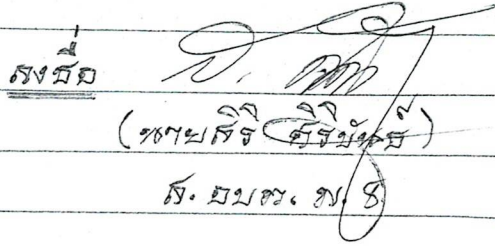 ลงชื่อ
(นายสิริ ศิริขันธ์)
ส. อบต. ม. 8